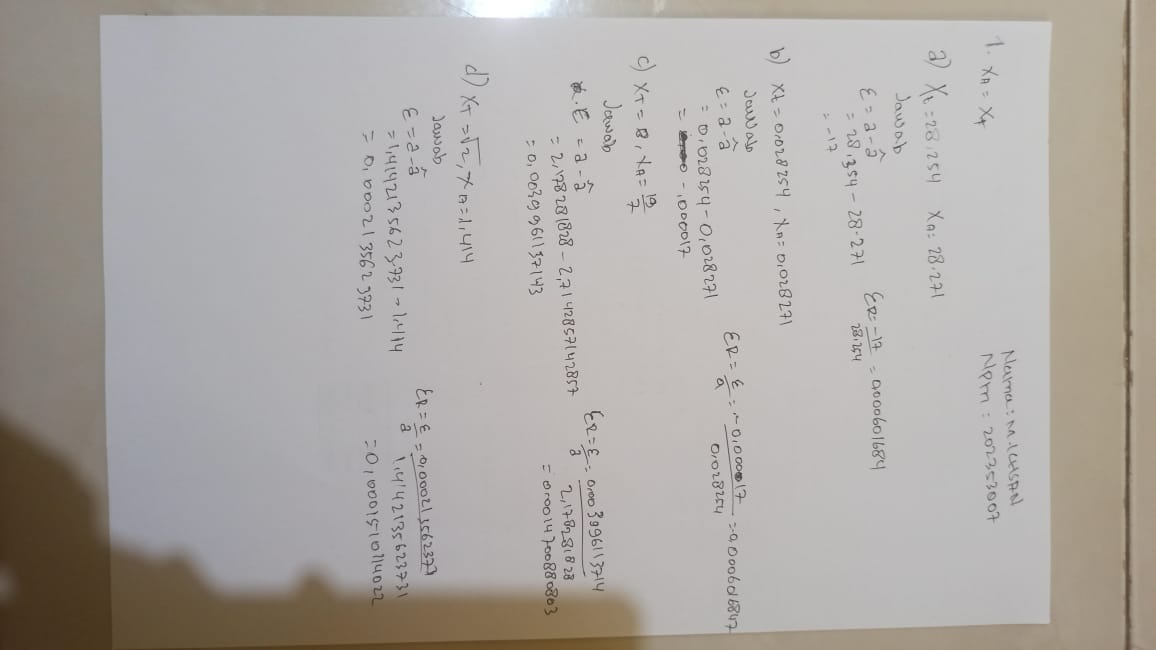 Nama : M.ICHSAN
Npm : 202353007
1. XA = Xt
a) Xt = 28.254 XA = 28.271
Jawab
ε = a - â
= 28.354 - 28.271
= -17
εR = -17 / 28.254 = 0.000601684
b) Xt = 0,028254 , XA = 0,028271
Jawab
ε = a - â
= 0,028254 - 0,028271
= -,000017
εR = ε/a = -0,000017 / 0,028254 = -0,0006016847
c) XT = e, XA = 19/7
Jawab
ε = a - â
= 2,178281828 - 2,7142857142857
= 0,0039961137143
εR = ε/a = 0,003996113714 / 2,178281828
= 0.0014700880803
d) XT = √2, XA = 1,414
Jawab
ε = a - â
= 1,4142135623731 - 1,414
= 0,0002135623731
εR = ε/a = 0,0002135623731 / 1,4142135623731
= 0,0001510114022